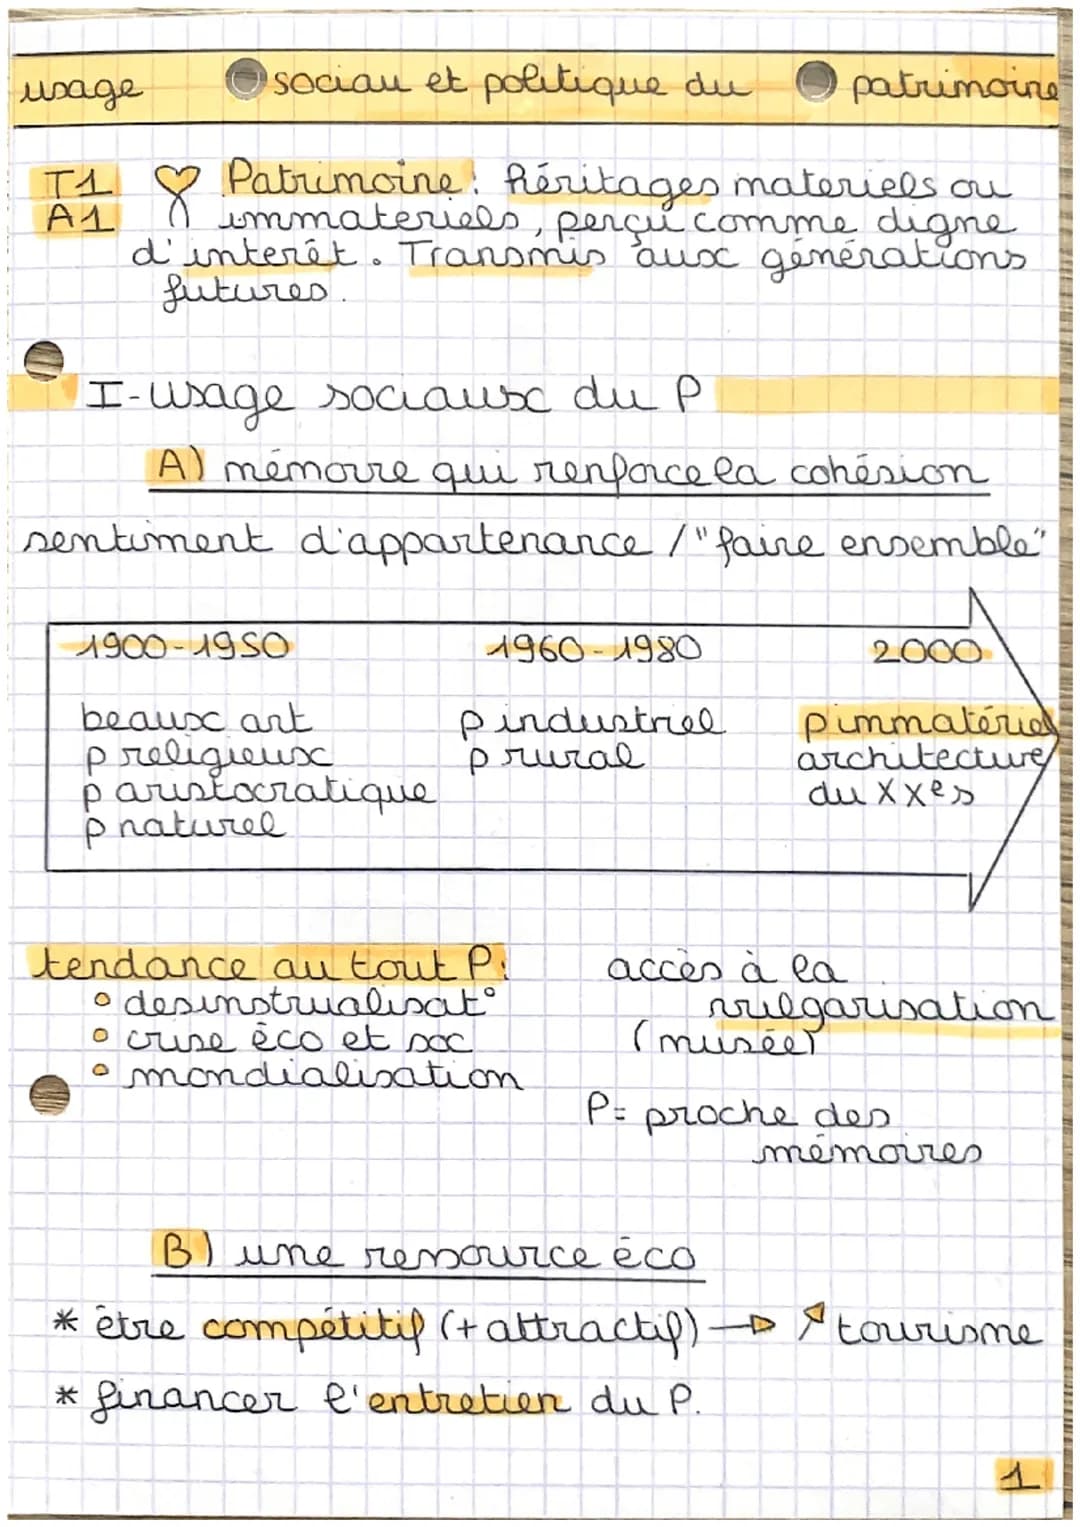 usage sociau et politique du patrimoine
T1 Patrimoine: héritages materiels ou
A1 immateriels, perçu comme digne
d'interêt. Transmis aux générations
futures.
I-usage sociaux du P
A) mémoire qui renforce la cohésion
sentiment d'appartenance / "faire ensemble"
1900-1950 1960-1980 2000
beaux art p industriel p immatériel
p religieux p rural architecture
p aristocratique du XXes
p naturel
tendance au tout P: accès à la
• desinstrualisat° vulgarisation
• crise éco et soc (musée)
• mondialisation
P= proche des
mémoires
B) une ressource éco
* être compétitif (+ attractif) → ↗ tourisme
* financer l'entretien du P.
1